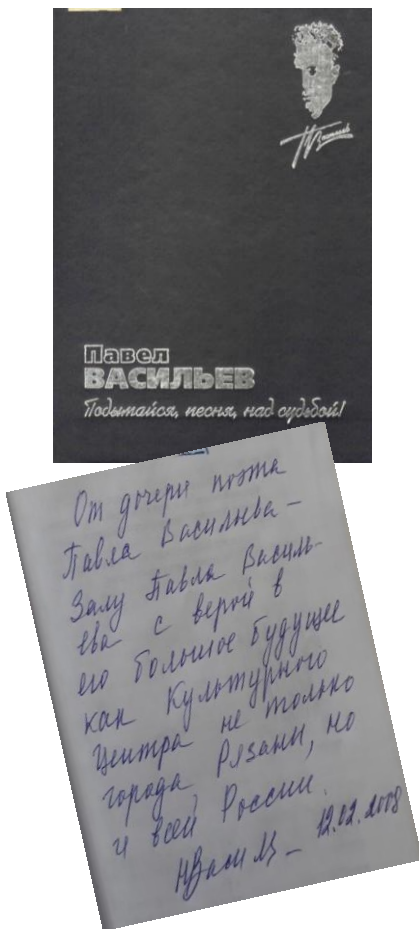 Павел
ВАСИЛЬЕВ
Подымайся, песня, над судьбой!
От дочери поэта
Павла Васильева –
Залу Павла Василь-
ева с верой в
его большое будущее
как Культурного
Центра не только
города Рязани, но
и всей России.
НВасил– 12.02.2008